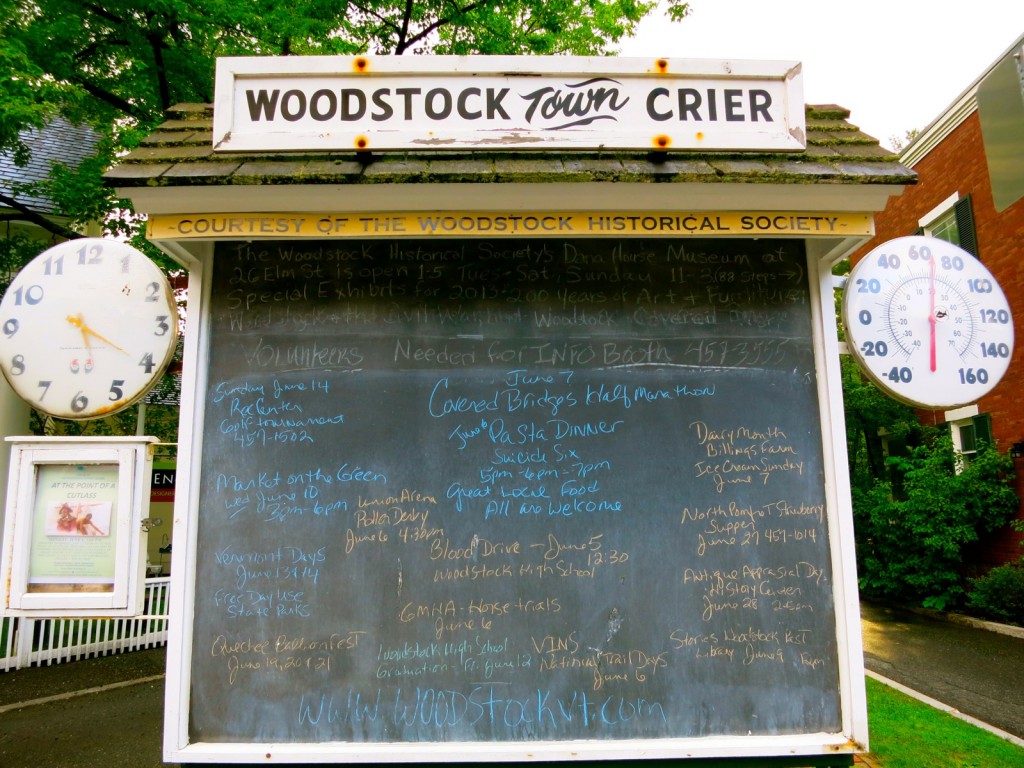 WOODSTOCK Town CRIER
-COURTESY OF THE WOODSTOCK HISTORICAL SOCIETY-
The Woodstock Historical Society's Dana House Museum at
26 Elm St. is open 1-5 Tues-Sat, Sunday 11-3 (88 steps →)
Special Exhibits for 2015-200 years of Art + Furniture
Woodstock
Volunteers Needed for Info Booth 457-35
Sunday June 14
Rec Center
Golf tournament
457-1502
Market on the Green
Wed June 10
3pm-6pm
Vermont Days
June 13 & 14
Free Day Use
State Parks
Quechee Balloon Fest
June 19, 20 & 21
Union Arena
Roller Derby
June 6 4:30pm
June 7
Covered Bridges Half Marathon
June 6 Pasta Dinner
Suicide Six
5pm-6pm-7pm
Great Local Food
All are Welcome
Blood Drive - June 5
12:30
Woodstock High School
GMHA - Horse trials
June 6
Woodstock High School
Graduation - Fri. June 12
VINS
National Trail Days
June 6
Dairy Month
Billings Farm
Ice Cream Sunday
June 7
North Pomfret Strawberry
Supper
June 27 457-1014
Antique Appraisial Day
History Center
June 28
Stories Woodstock Fest
Library June 9
www.woodstockvt.com
12
1
2
3
4
5
6
7
8
9
10
11
-40
-20
0
20
40
60
80
100
120
140
160
AT THE POINT OF A
CUTLASS
EN